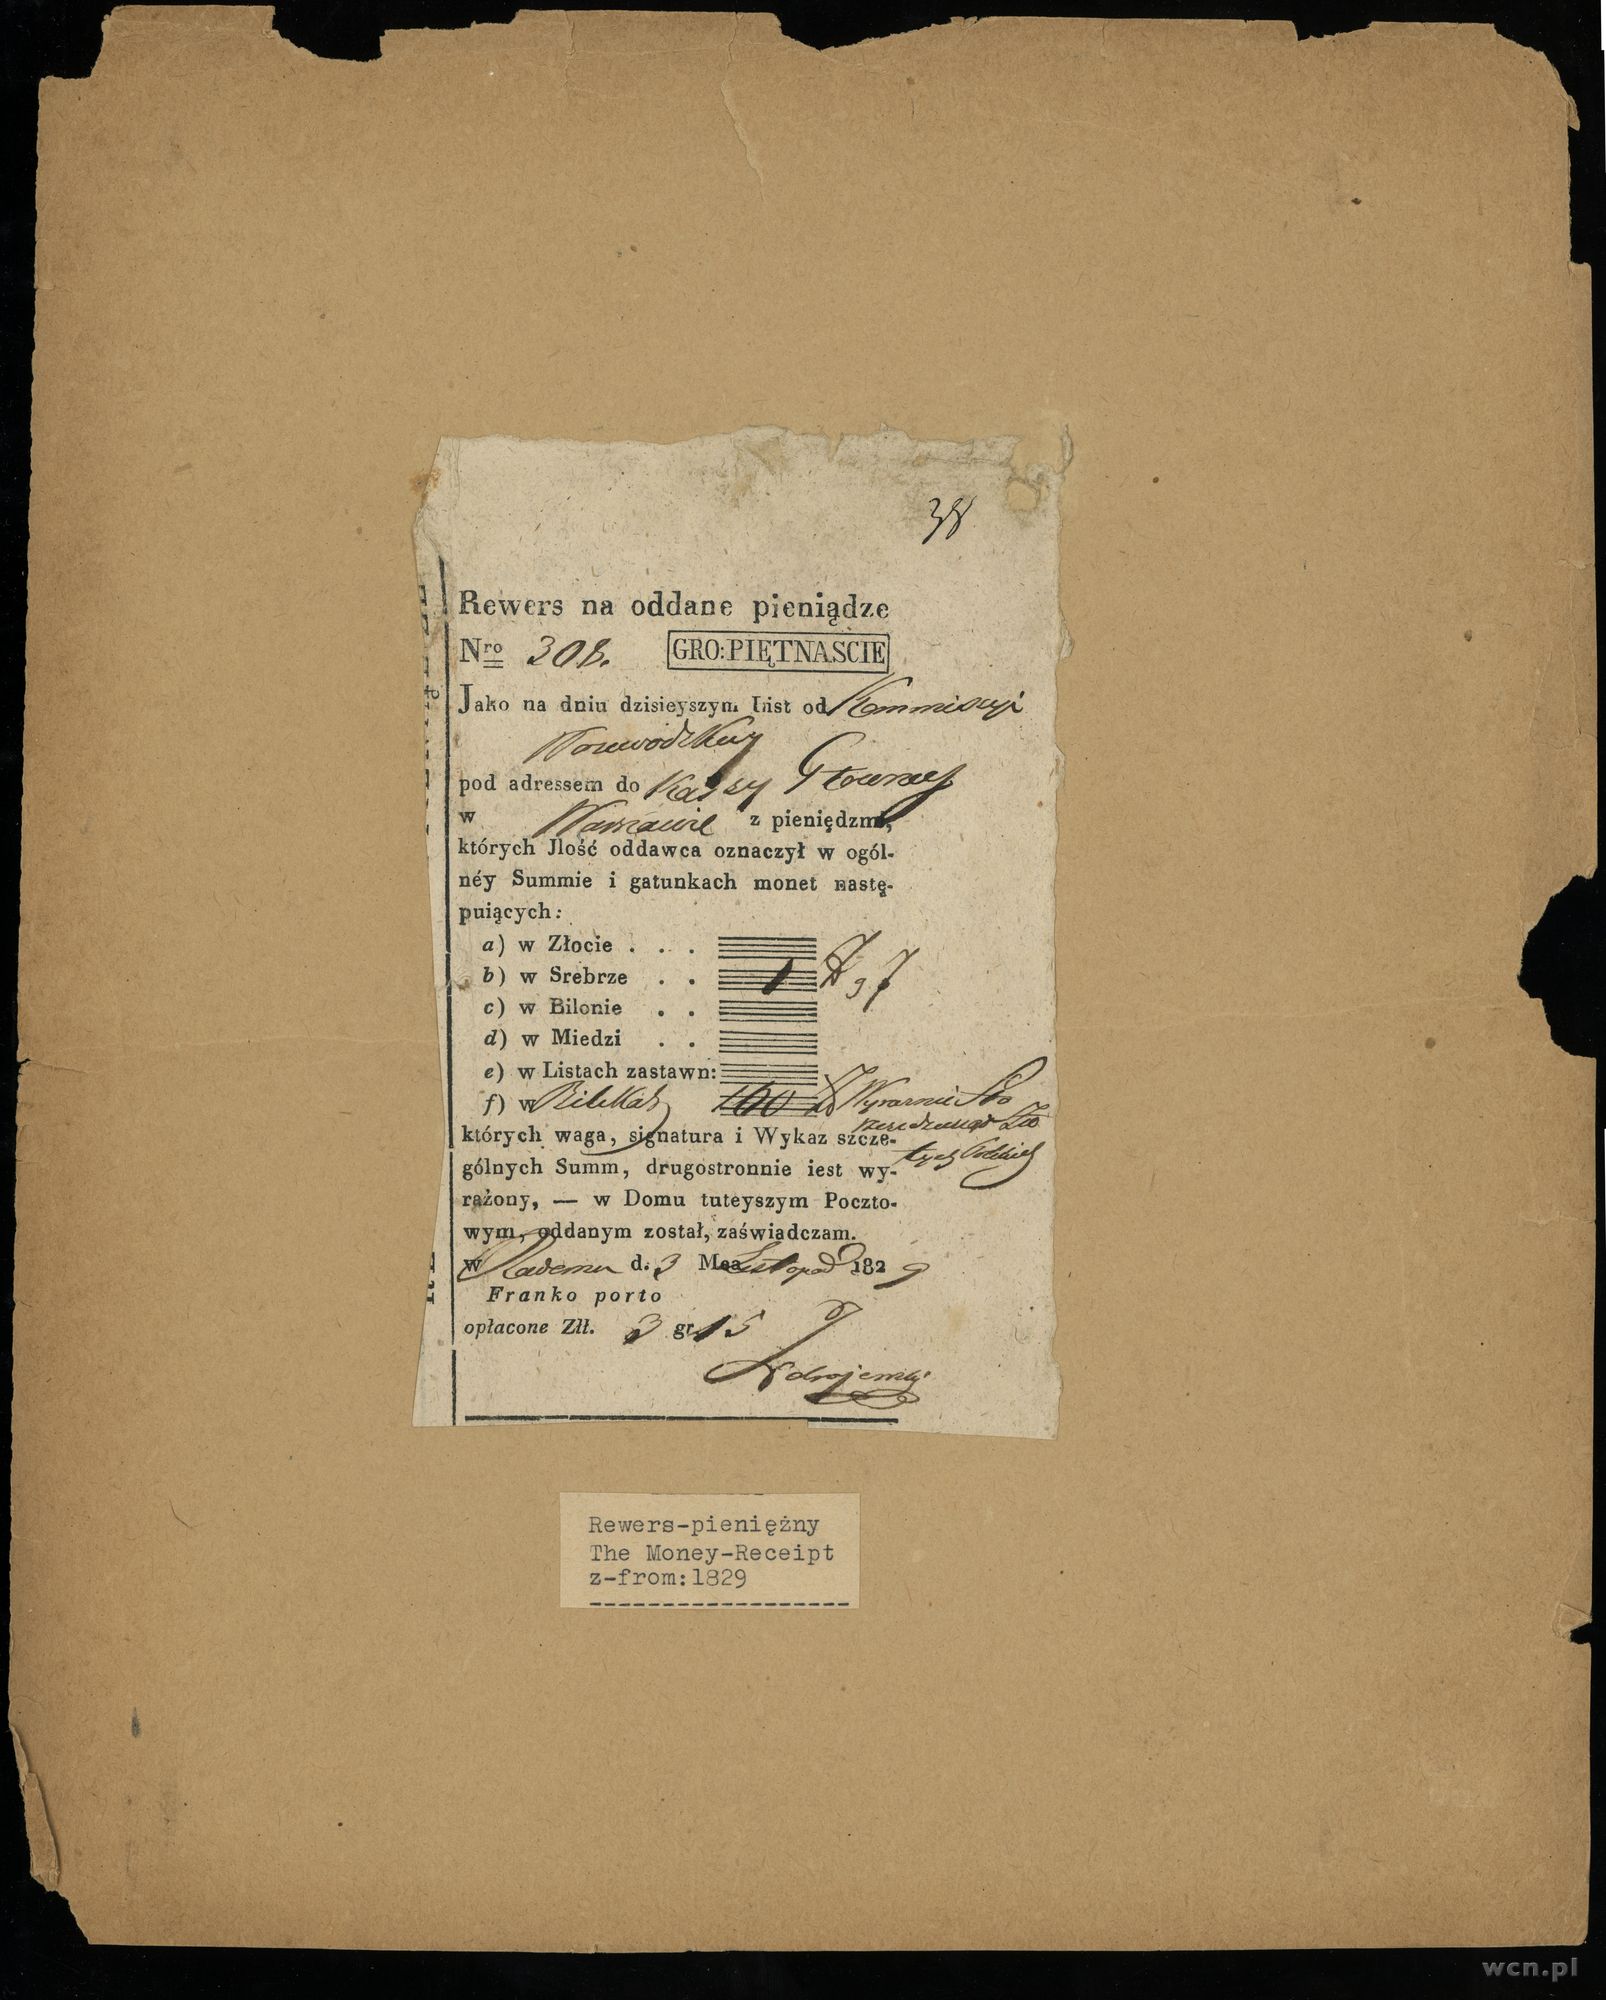 38
Rewers na oddane pieniądze
Nro 308. GRO: PIĘTNASCIE
Jako na dniu dzisieyszym List od Kommissyi
Woiewodzkiey
pod adressem do Kassy Główney
w Warszawie z pieniędzmi,
których Jlość oddawca oznaczył w ogól-
néy Summie i gatunkach monet nastę-
puiących:
a) w Złocie . . .
b) w Srebrze . . 1
c) w Bilonie . .
d) w Miedzi . .
e) w Listach zastawn:
f) w 160
których waga, signatura i Wykaz szcze-
gólnych Summ, drugostronnie iest wy-
rażony, — w Domu tuteyszym Poczto-
wym, oddanym został, zaświadczam.
w Radomiu d. 3 Mca Listopad 1829
Franko porto
opłacone Złł. 3 gr. 15
Rewers-pieniężny
The Money-Receipt
z-from:1829
wcn.pl